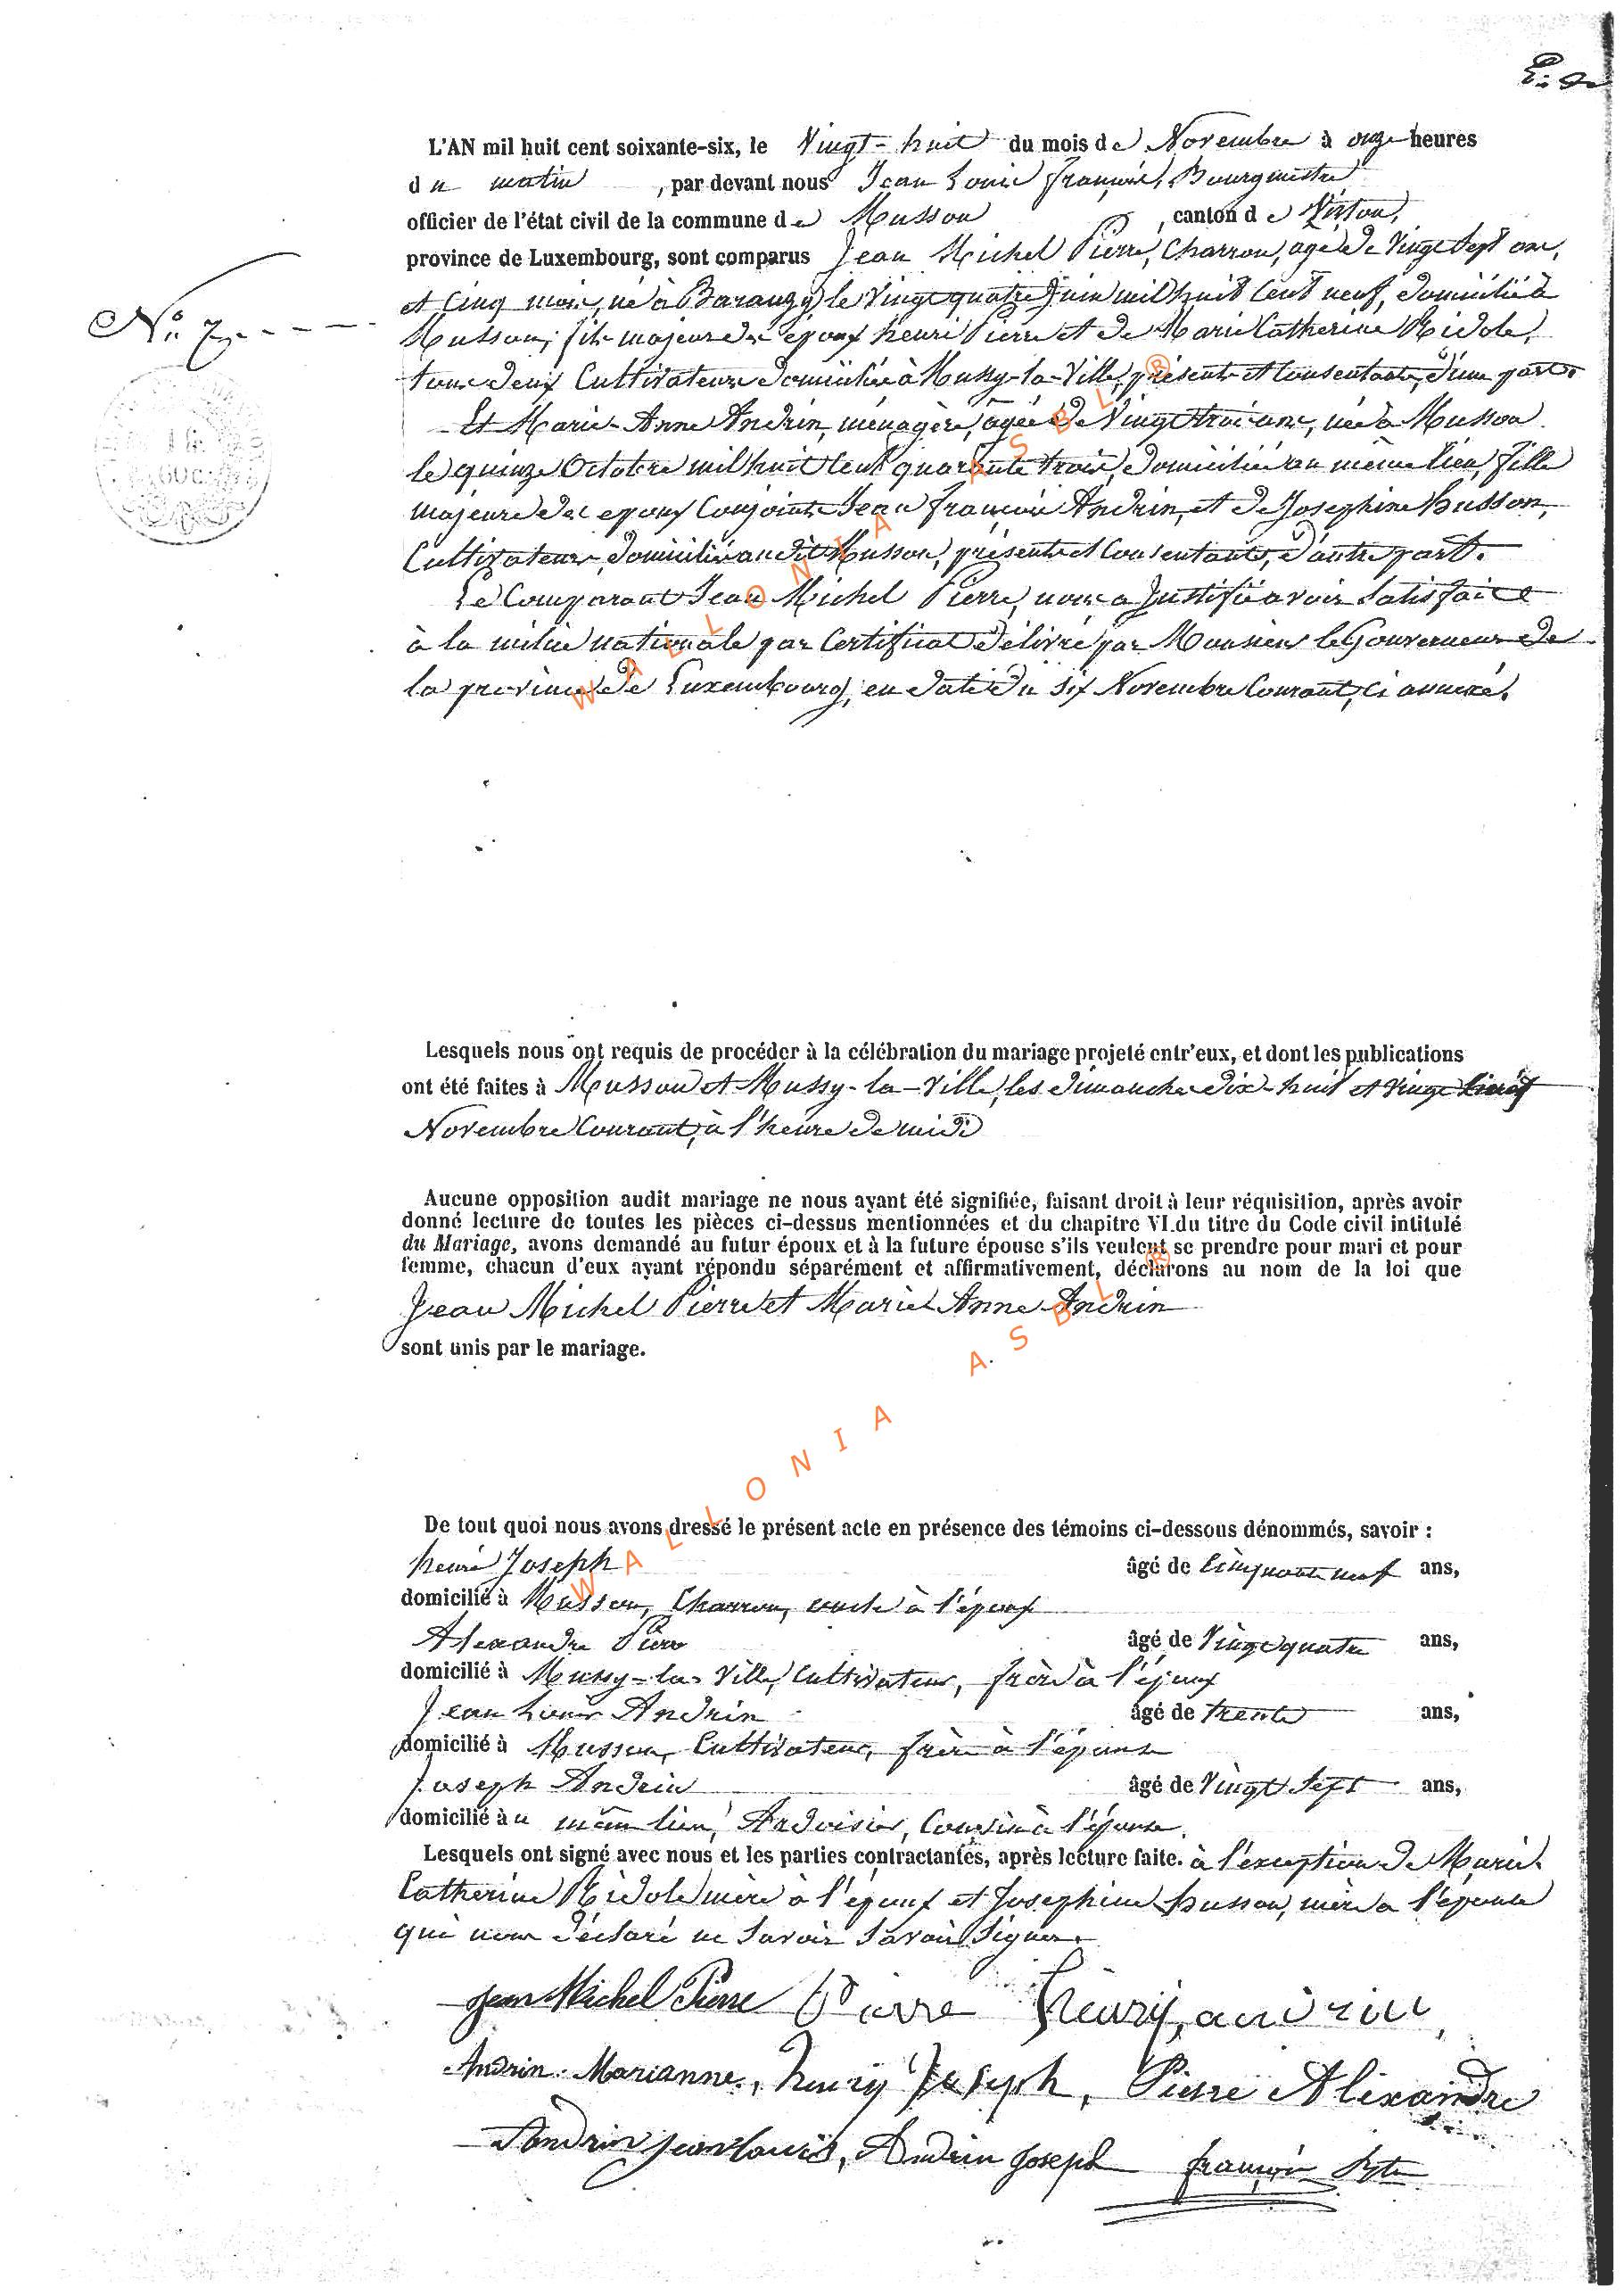 L'AN mil huit cent soixante-six, le Vingt-huit du mois de Novembre à onze heures
du matin, par devant nous Jean Louis François, Bourgmestre
officier de l'état civil de la commune de Musson, canton de Virton,
province de Luxembourg, sont comparus Jean Michel Pierre, Charron, agé de Vingt Sept ans,
et Cinq mois, né à Baranzy, le Vingt quatre Juin mil huit Cent neuf, domicilié à
No 7
Musson, fils majeur des époux henri Pierre et de Marie Catherine Ridole,
tous deux Cultivateurs domiciliés à Mussy-la-Ville, présents et Consentants, d'une part.
Et Marie-Anne Andrin, ménagère, agée de Vingt trois ans, née à Musson
le quinze Octobre mil huit Cent quarante trois, domiciliée au même lieu, fille
majeure des epoux Conjoints Jean françois Andrin, et de Josephine Husson,
Cultivateurs, domiciliés au dit Musson, présents et Consentants, d'autre part.
Le Comparant Jean Michel Pierre, nous a Justifié avoir Satisfait
à la milice nationale par Certificat délivré par Monsieur le Gouverneur de
la province de Luxembourg, en date du six Novembre Courant, ci annexé.
Lesquels nous ont requis de procéder à la célébration du mariage projeté entr'eux, et dont les publications
ont été faites à Musson et Mussy-la-Ville, les dimanches dix-huit et Vingt Cinq
Novembre Courant, à l'heure de midi
Aucune opposition audit mariage ne nous ayant été signifiée, faisant droit à leur réquisition, après avoir
donné lecture de toutes les pièces ci-dessus mentionnées et du chapitre VI du titre du Code civil intitulé
du Mariage, avons demandé au futur époux et à la future épouse s'ils veulent se prendre pour mari et pour
femme, chacun d'eux ayant répondu séparément et affirmativement, déclarons au nom de la loi que
Jean Michel Pierre et Marie Anne Andrin
sont unis par le mariage.
De tout quoi nous avons dressé le présent acte en présence des témoins ci-dessous dénommés, savoir :
henri Joseph âgé de Cinquante neuf ans,
domicilié à Musson, Charron, oncle à l'époux
Alexandre Pierre âgé de Vingt quatre ans,
domicilié à Mussy-la-Ville, Cultivateur, frère à l'époux
Jean Louis Andrin âgé de trente ans,
domicilié à Musson, Cultivateur, frère à l'épouse
Joseph Andrin âgé de Vingt Sept ans,
domicilié au même lieu, Ardoisier, Cousin à l'épouse.
Lesquels ont signé avec nous et les parties contractantes, après lecture faite. à l'exception de Marie
Catherine Ridole mère à l'époux et Josephine husson, mère a l'épouse
qui nous déclaré ne Savoir Savoir Signer.
Jean Michel Pierre Pierre henry, andrin,
Andrin Marianne, henry Joseph, Pierre Alixandre
Andrin Jean Louis, Andrin Joseph françois
WALLONIA ASBL ®
WALLONIA ASBL ®